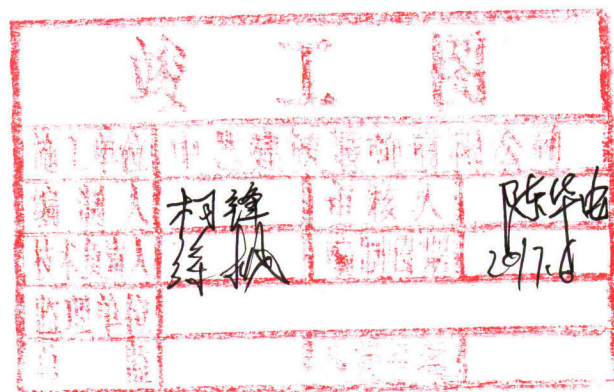 竣工图
施工单位 中艺建筑装饰有限公司
编制人 柯锋 审核人 陈华
技术负责人 徐 编制日期 2017.6
监理单位
总监